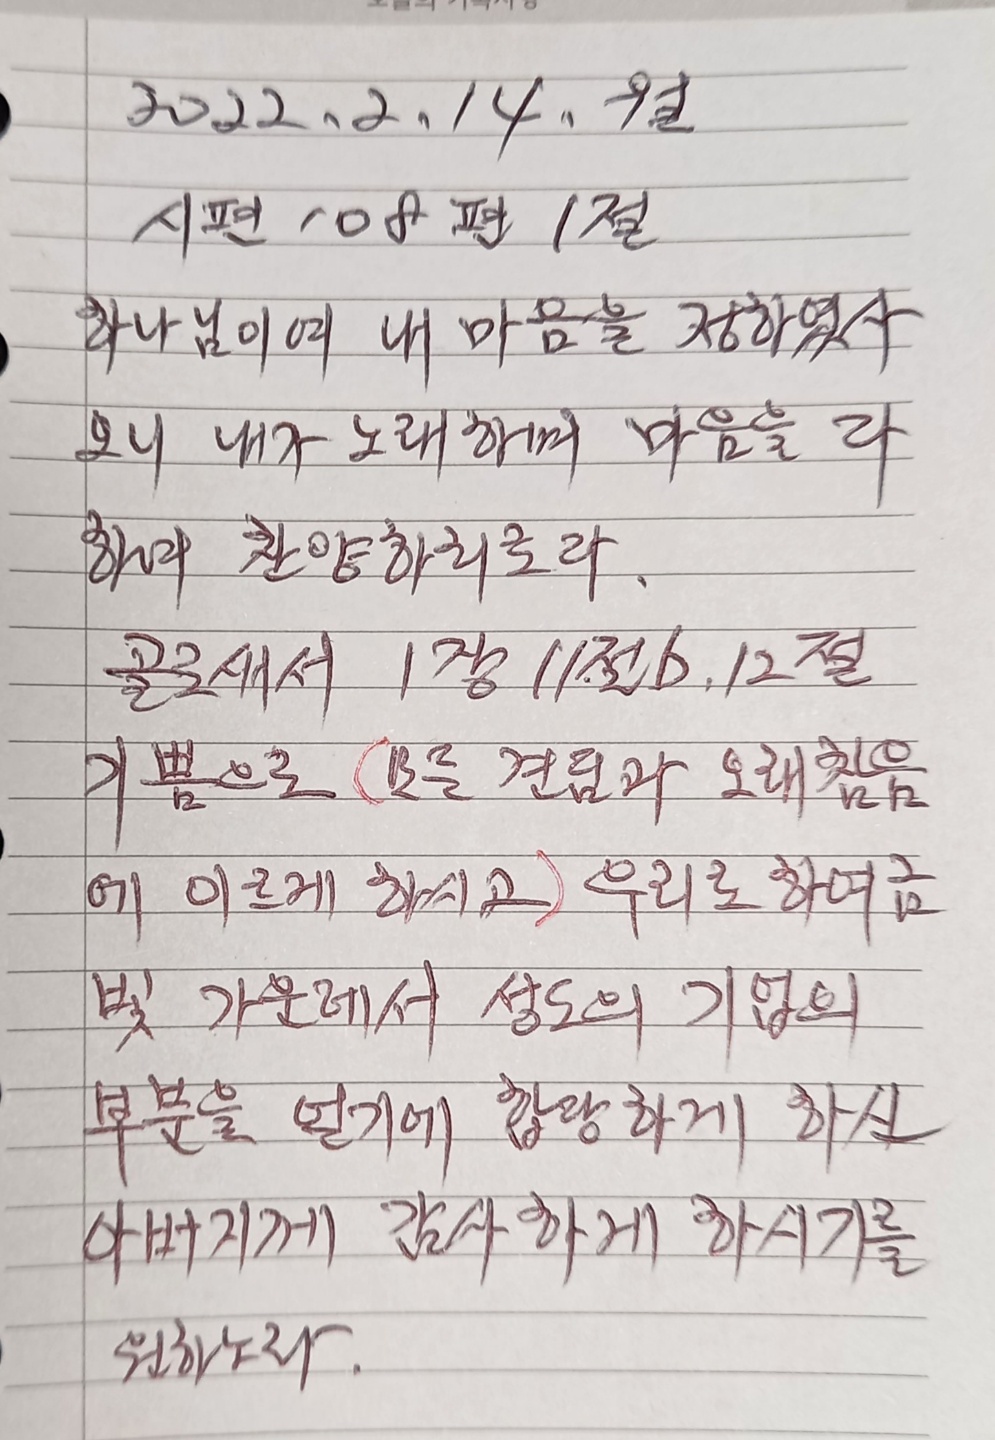 2022. 2. 14. 월
시편 108편 1절
하나님이여 내 마음을 정하였사
오니 내가 노래하며 마음을 다
하여 찬양하리로다.
골로새서 1장 11절b, 12절
기쁨으로 (모든 견딤과 오래참음
에 이르게 하시고) 우리로 하여금
빛 가운데서 성도의 기업의
부분을 얻기에 합당하게 하신
아버지께 감사하게 하시기를
원하노라.